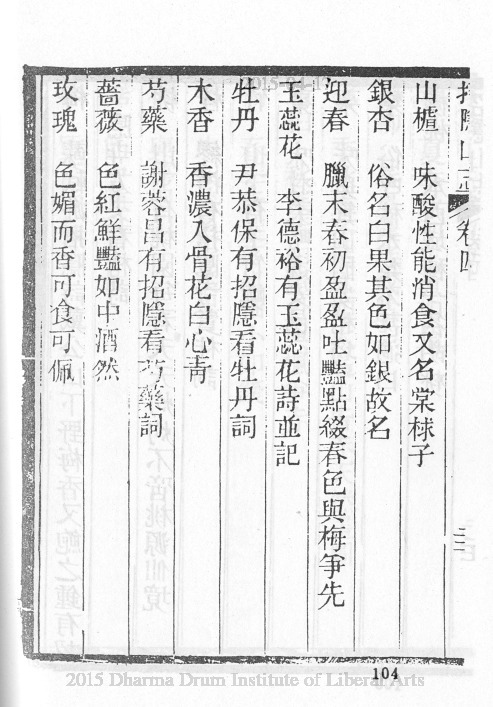 招隱山志 卷四 二
山樝 味酸性能消食又名棠梂子
銀杏 俗名白果其色如銀故名
迎春 臘末春初盈盈吐豔點綴春色與梅爭先
玉蕊花 李德裕有玉蕊花詩並記
牡丹 尹恭保有招隱看牡丹詞
木香 香濃入骨花白心青
芍藥 謝蓉昌有招隱看芍藥詞
薔薇 色紅鮮豔如中酒然
玫瑰 色媚而香可食可佩
104
2015 Dharma Drum Institute of Liberal Arts